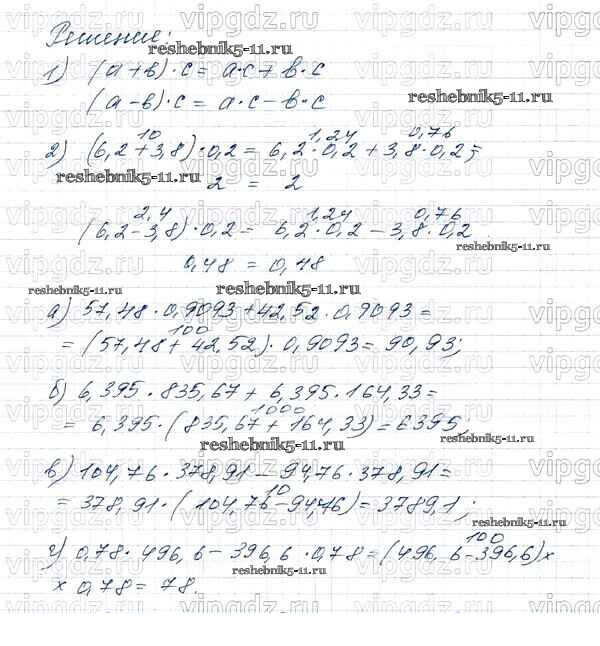 Решение:
1) (a+b)·c = a·c+b·c
(a-b)·c = a·c-b·c
10 1,24 0,76
2) (6,2+3,8)·0,2 = 6,2·0,2+3,8·0,2;
2 = 2
2,4 1,24 0,76
(6,2-3,8)·0,2 = 6,2·0,2-3,8·0,2
0,48 = 0,48
а) 57,48·0,9093+42,52·0,9093=
100
=(57,48+42,52)·0,9093=90,93;
б) 6,395·835,67+6,395·164,33=
1000
= 6,395·(835,67+164,33)=6395;
в) 104,76·378,91-94,76·378,91=
10
= 378,91·(104,76-94,76)=3789,1;
100
г) 0,78·496,6-396,6·0,78=(496,6-396,6)×
× 0,78=78.
reshebnik5-11.ru
reshebnik5-11.ru
reshebnik5-11.ru
reshebnik5-11.ru
reshebnik5-11.ru
reshebnik5-11.ru
reshebnik5-11.ru
reshebnik5-11.ru
reshebnik5-11.ru
vipgdz.ru